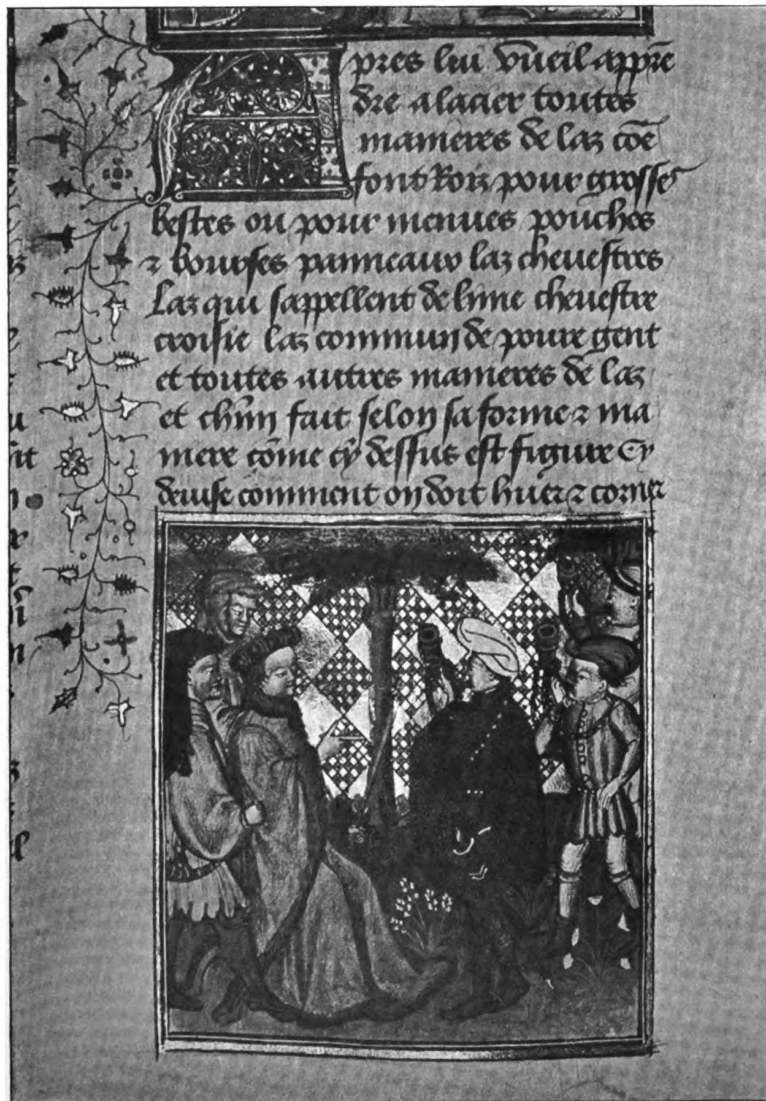 Apres lui vueil appre
dre a lacier toutes
manieres de laz cōe
font Roiz pour grosses
bestes ou pour menues pouches
⁊ bourses panneaux laz chevestres
Laz qui sappellent de lune chevestre
croisie laz commun de povre gent
et toutes autres manieres de laz
et chūn fait selon sa forme ⁊ ma
niere cōme cy dessus est figure Cy
devise comment on doit huer ⁊ corner